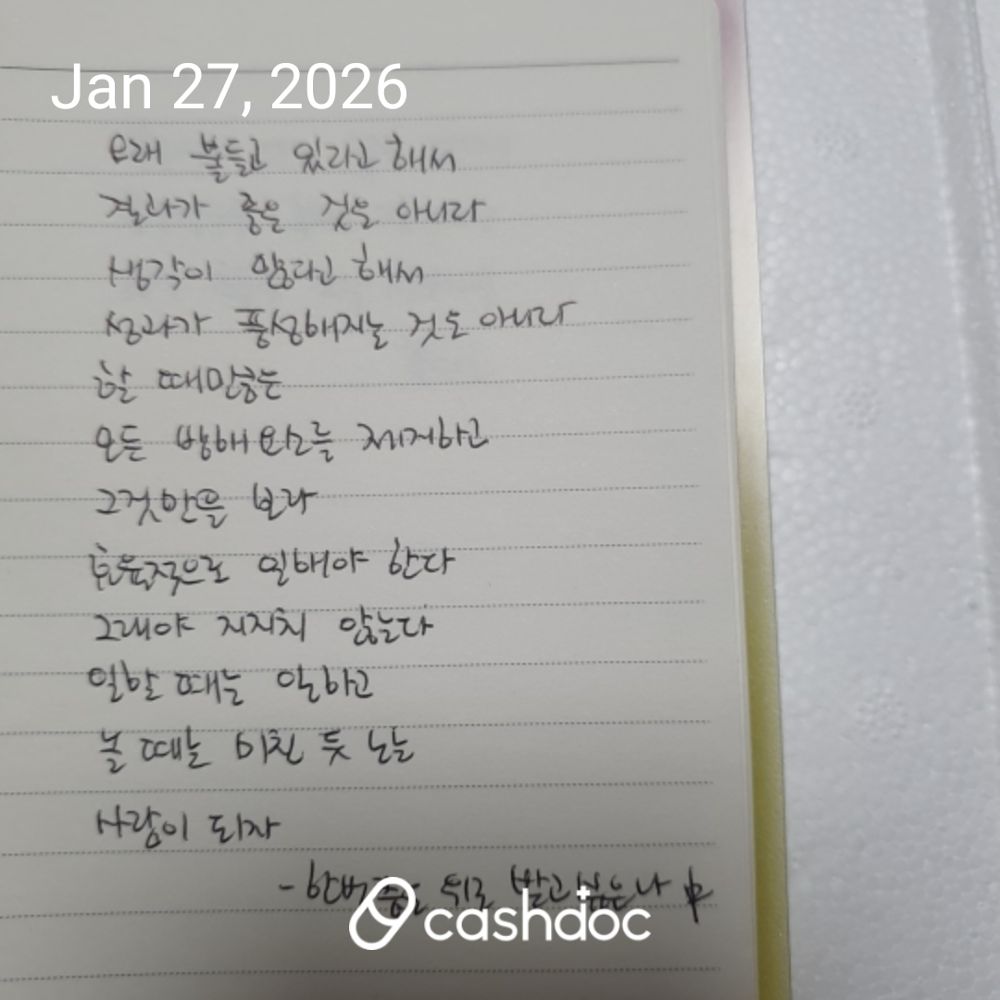 Jan 27, 2026
오래 붙들고 있다고 해서
결과가 좋은 것은 아니다
생각이 많다고 해서
성과가 풍성해지는 것도 아니다
할 때만큼은
모든 방해요소를 제거하고
그것만을 보라
효율적으로 일해야 한다
그래야 지치지 않는다
일할 때는 일하고
놀 때는 미친 듯 노는
사람이 되자
- 한번쯤 뒤로 中
cashdoc